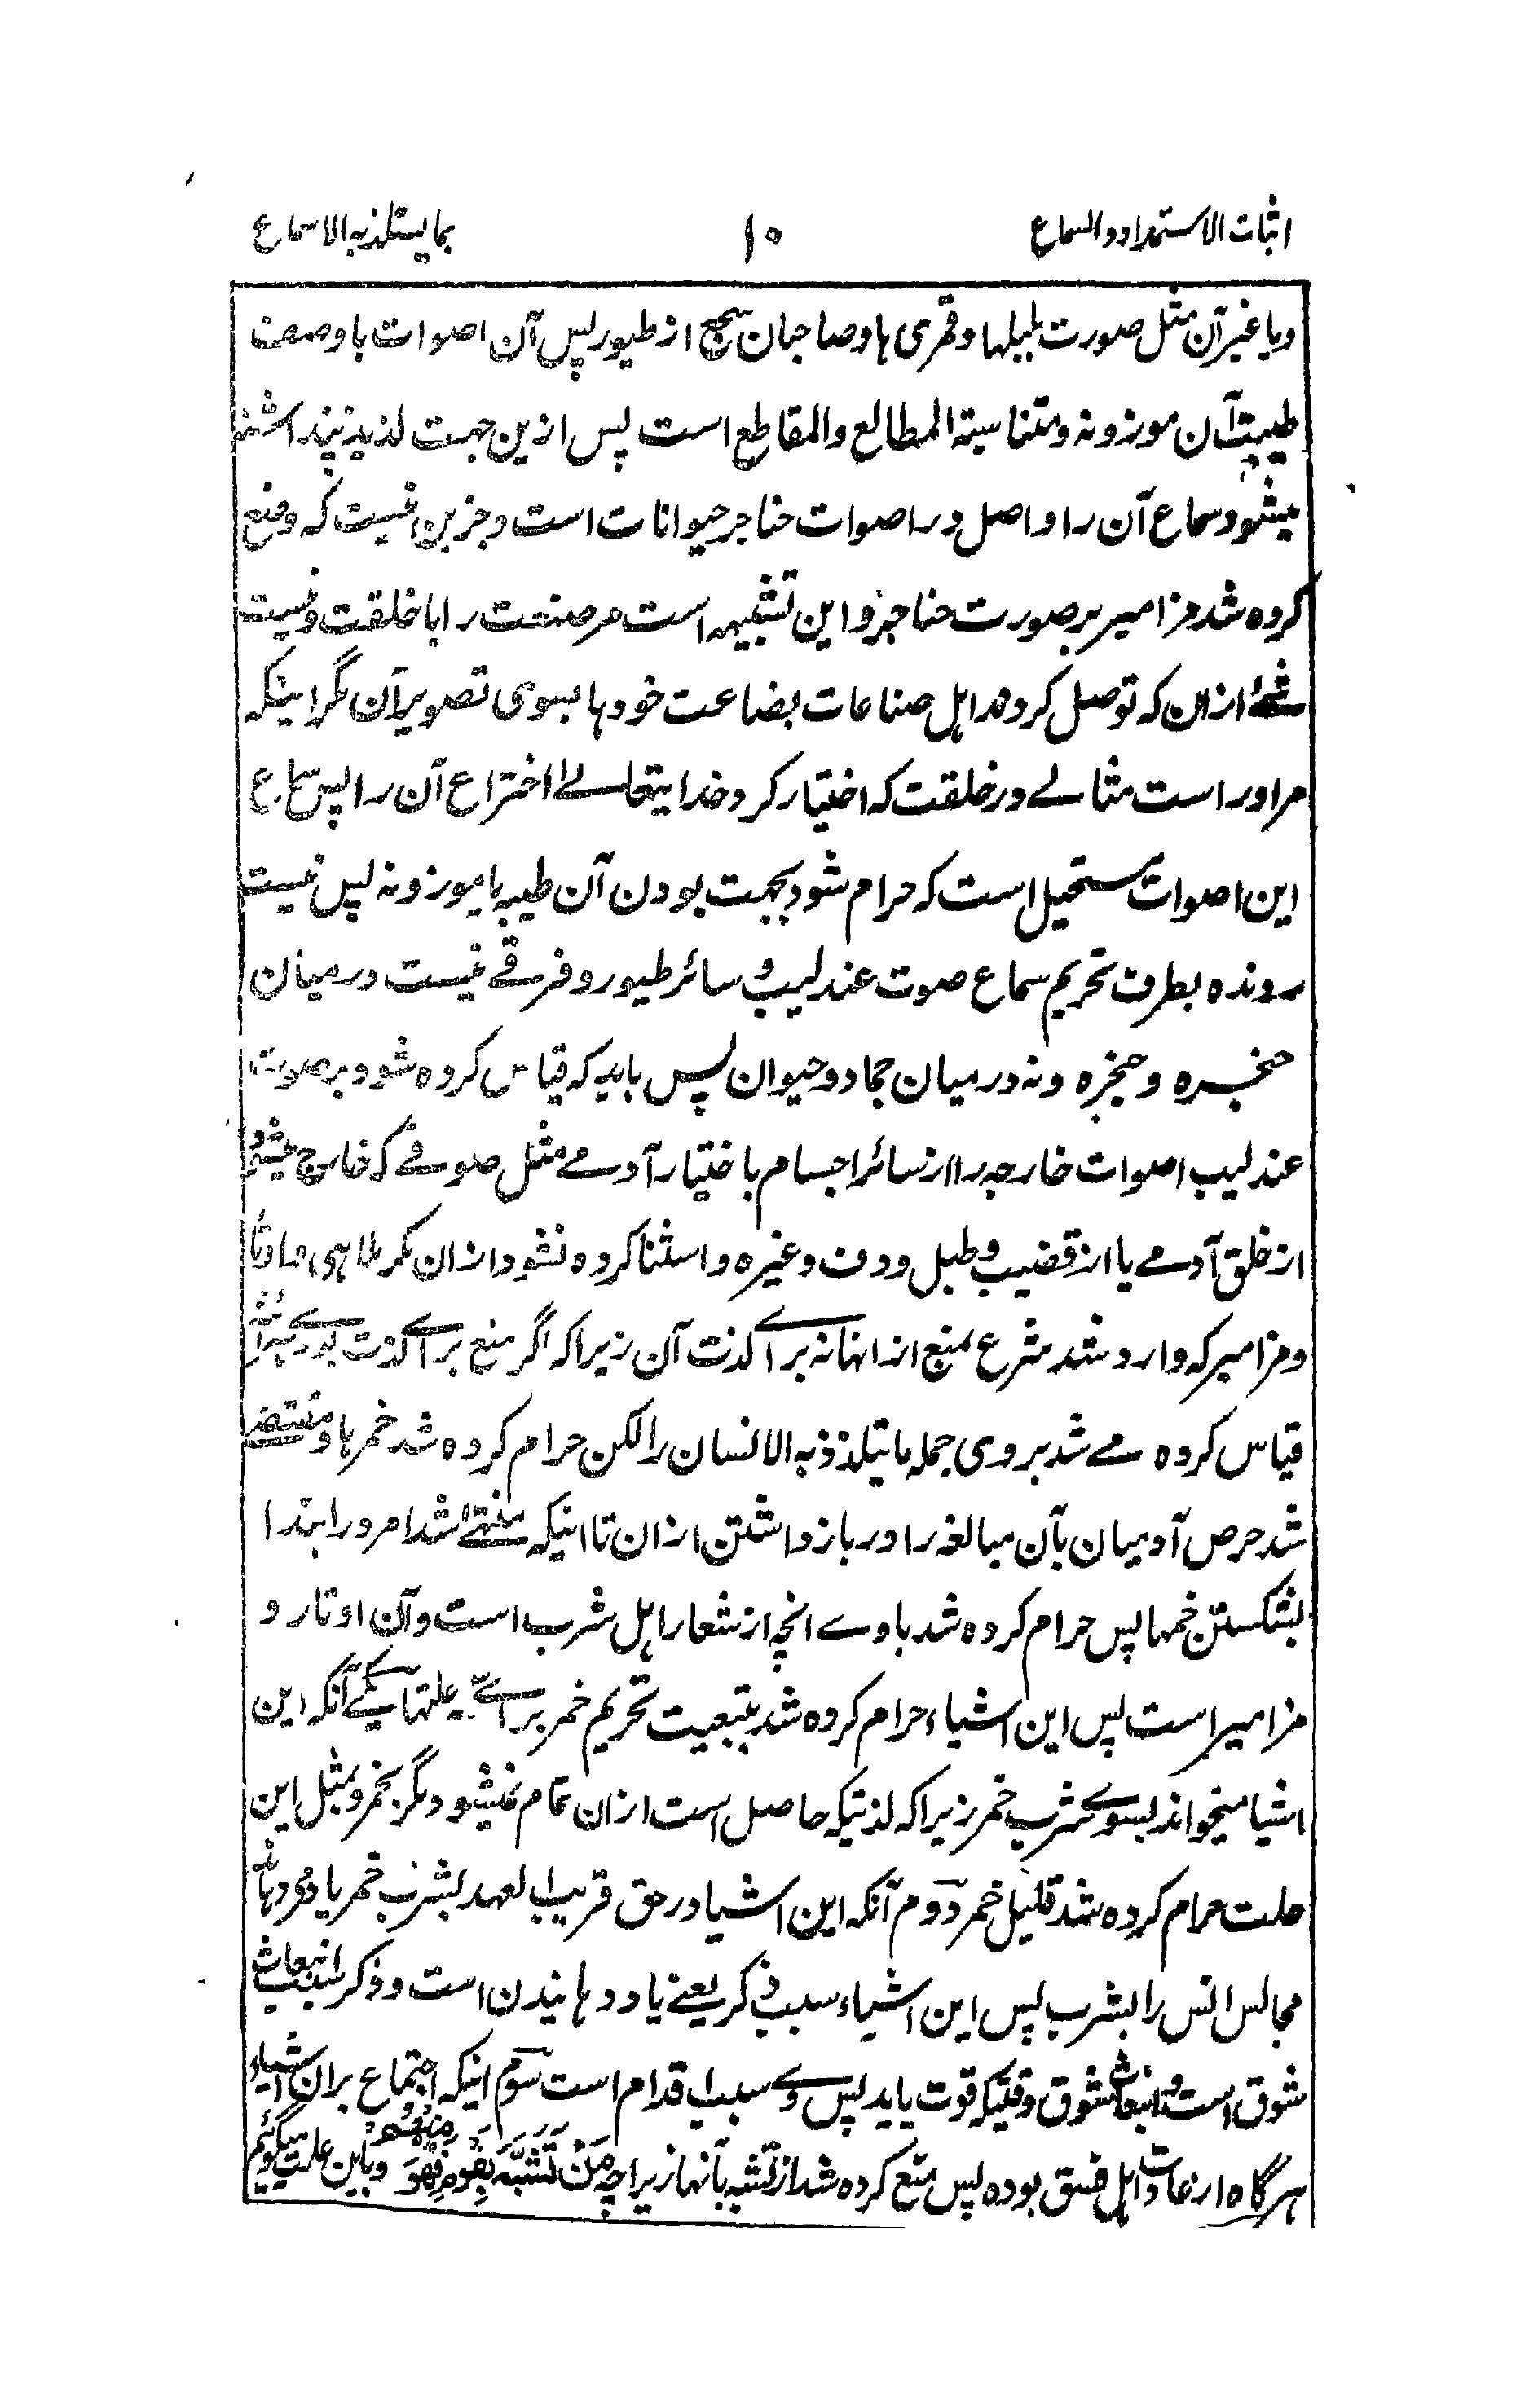 اثبات الاستمداد والسماع ۱۰ بما یستلذ به الاسماع
ویا غیر آن مثل صورت بلبلها و قمری ها و صاحبان سجع از طیور پس آن اصوات با وصف
طیبت آن موزونه و متناسبة المطالع والمقاطع است پس ازین جهت لذیذ پنداشته
میشود سماع آن را و اصل در اصوات حناجر حیوانات است و جز بن نیست که وضع
کرده شد مزامیر بر صورت حناجر و این تشبیهه است مر صنعت را با خلقت و نیست
شئے ازان که توصل کردند اهل صناعات بضاعت خودها بسوی تصویر آن مگر اینکه
مر اور است مثالے در خلقت که اختیار کرد خدایتعالے اختراع آن را پس سماع
این اصوات مستحیل است که حرام شود بجهت بودن آن طیبه یا موزونه پس نیست
رونده بطرف تحریم سماع صوت عندلیب و سائر طیور و فرقے نیست در میان
حنجره و حنجره ونه درمیان جماد و حیوان پس باید که قیاس کرده شود بر صوت
عندلیب اصوات خارجه را از سائر اجسام باختیار آدمے مثل صوفے که خارج میشود
از خلق آدمے یا از قضیب و طبل و دف و غیره و استثنا کرده نشود ازان مگر ملاهی و اوتار
و مزامیر که وارد شد شرع بمنع از انها نه براے لذت آن زیرا که اگر منع براے لذت بودے هر آئنه
قیاس کرده مے شد بروی جمله ما یتلذذ به الانسان را لکن حرام کرده شد خمرها و مقتضے
شد حرص آدمیان بآن مبالغه را در بازداشتن ازان تا اینکه منتهے شد امر در ابتدا
بشکستن خمها پس حرام کرده شد باوے انچه از شعار اهل شرب است و آن اوتار و
مزامیر است پس این اشیاء حرام کرده شد بتبعیت تحریم خمر براے سه علتها یکے آنکه این
اشیا میخواند بسوے شرب خمر زیرا که لذتیکه حاصل است ازان تمام نمیشود مگر بخمر و بمثل این
علت حرام کرده شد قلیل خمر دوم آنکه این اشیا در حق قریب العهد بشرب خمر یاد می دهاند
مجالس انس را بشرب پس این اشیاء سبب ذکر یعنے یاد دهانیدن است و ذکر سبب انبعاث
شوق است و انبعاث شوق وقتیکه قوت یابد پس وے سبب اقدام است سوم اینکه اجتماع بران اشیاء
هرگاه از عادات اهل فسق بوده پس منع کرده شد از تشبه بآنها زیرا چه مَنْ تَشَبَّهَ بِقَوْمٍ فَهُوَ مِنْهُمْ و باین علت میگوئیم